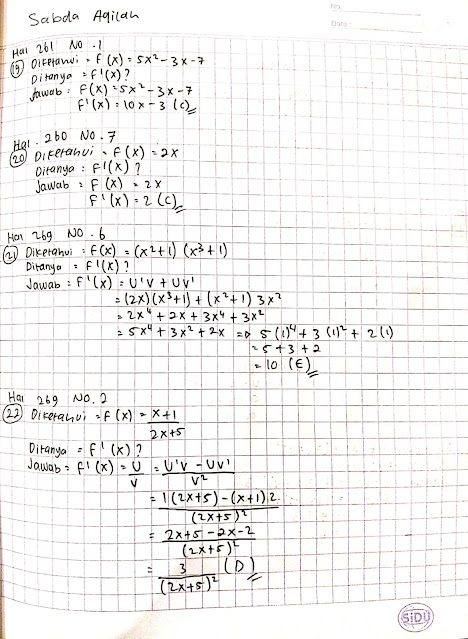 Sabda Aqilah
No.
Date:
Hal 261 No. 1
(19) Diketahui = f(x) = 5x² - 3x - 7
Ditanya = F'(x)?
Jawab = F(x) = 5x² - 3x - 7
F'(x) = 10x - 3 (C)
Hal. 260 No. 7
(20) Diketahui = F(x) = 2x
Ditanya : F'(x)?
Jawab : F(x) = 2x
F'(x) = 2 (C)
Hal 269 No. 6
(21) Diketahui = f(x) = (x²+1) (x³+1)
Ditanya = F'(x)?
Jawab = F'(x) = U'V + UV'
= (2x)(x³+1) + (x²+1) 3x²
= 2x⁴ + 2x + 3x⁴ + 3x²
= 5x⁴ + 3x² + 2x => 5(1)⁴ + 3(1)² + 2(1)
= 5 + 3 + 2
= 10 (E)
Hal 269 No. 2
(22) Diketahui = f(x) = x+1
2x+5
Ditanya = F'(x)?
Jawab = F'(x) = U = U'V - UV'
V V²
= 1(2x+5) - (x+1)2
(2x+5)²
= 2x+5 - 2x - 2
(2x+5)²
= 3 (D)
(2x+5)²
SiDU